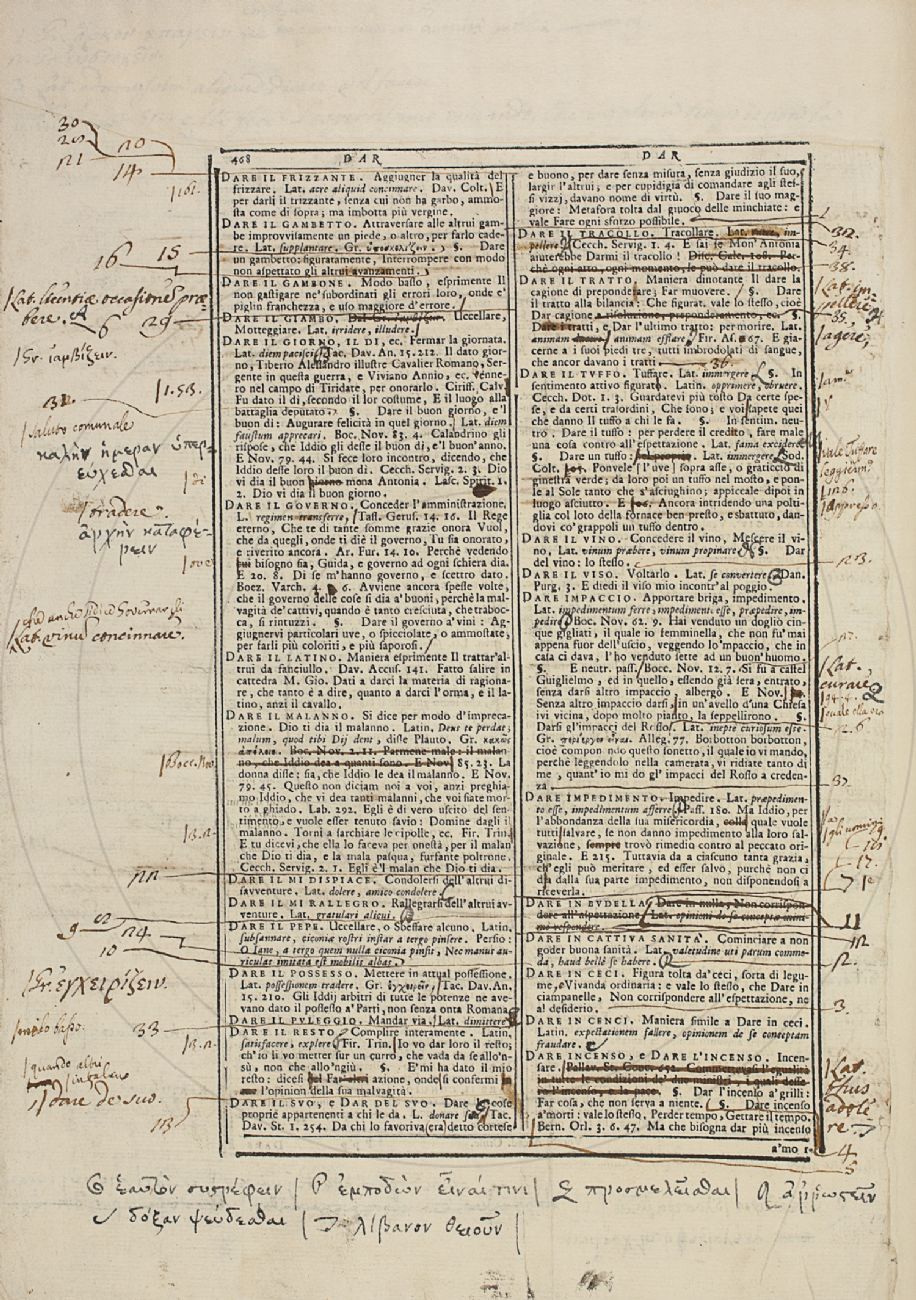 468 DAR DAR
DARE IL FRIZZANTE. Aggiugner la qualità del
frizzare. Lat. acre aliquid concinnare. Dav. Colt. E
per darli il frizzante, senza cui non ha garbo, ammo-
sta come di sopra; ma imbotta più vergine.
DARE IL GAMBETTO. Attraversare alle altrui gam-
be improvvisamente un piede, o altro, per farlo cade-
re. Lat. supplantare. Gr. ὑποσκελίζειν. §. Dare
un gambetto: figuratamente, Interrompere con modo
non aspettato gli altrui avanzamenti.
DARE IL GAMBONE. Modo basso, esprimente Il
non gastigare ne' subordinati gli errori loro, onde e'
piglin franchezza, e uso maggiore d'errore.
DARE IL GIAMBO. Uccellare,
Motteggiare. Lat. irridere, illudere.
DARE IL GIORNO, IL DI, ec. Fermar la giornata.
Lat. diem pacisci. Tac. Dav. An. 15. 212. Il dato gior-
no, Tiberio Alessandro illustre Cavalier Romano, Ser-
gente in questa guerra, e Viviano Annio, ec. venne-
ro nel campo di Tiridate, per onorarlo. Ciriff. Calv.
Fu dato il dì, secondo il lor costume, E il luogo alla
battaglia deputato. §. Dare il buon giorno, e 'l
buon dì: Augurare felicità in quel giorno. Lat. diem
faustum apprecari. Boc. Nov. 83. 4. Calandrino gli
rispose, che Iddio gli desse il buon dì, e 'l buon'anno.
E Nov. 79. 44. Si fece loro incontro, dicendo, che
Iddio desse loro il buon dì. Cecch. Servig. 2. 3. Dio
vi dia il buon giorno mona Antonia. Lasc. Spirit. 1.
2. Dio vi dia il buon giorno.
DARE IL GOVERNO. Conceder l'amministrazione.
L. regimen transferre. Tass. Gerus. 14. 16. Il Rege
eterno, Che te di tante somme grazie onora Vuol,
che da quegli, onde ti diè il governo, Tu sia onorato,
e riverito ancora. Ar. Fur. 14. 10. Perchè vedendo
bisogno sia, Guida, e governo ad ogni schiera dia.
E 20. 8. Di se m'hanno governo, e scettro dato.
Boez. Varch. 4. 6. Avviene ancora spesse volte,
che il governo delle cose si dia a' buoni, perchè la mal-
vagità de' cattivi, quando è tanto cresciuta, che traboc-
ca, si rintuzzi. §. Dare il governo a' vini: Ag-
giugnervi particolari uve, o spicciolate, o ammostate,
per farli più coloriti, e più saporosi.
DARE IL LATINO. Maniera esprimente Il trattar'al-
trui da fanciullo. Dav. Accus. 141. Fatto salire in
cattedra M. Gio. Dati a darci la materia di ragiona-
re, che tanto è a dire, quanto a darci l'orma, e il la-
tino, anzi il cavallo.
DARE IL MALANNO. Si dice per modo d'impreca-
zione. Dio ti dia il malanno. Latin. Deus te perdat;
malum, quod tibi Dij dent, disse Plauto. Gr. κακῶς
ἀπόλοιο. Boc. Nov. 2. 11. Parmene male: il malan-
no, che Iddio dea a quanti sono. E Nov. 85. 23. La
donna disse: sia, che Iddio le dea il malanno. E Nov.
79. 45. Questo non diciam noi a voi, anzi preghia-
mo Iddio, che vi dea tanti malanni, che voi siate mor-
to a ghiado. Lab. 292. Egli è di vero uscito del sen-
timento, e vuole esser tenuto savio: Domine dagli il
malanno. Torni a sarchiare le cipolle, ec. Fir. Trin.
E tu dicevi, che ella lo faceva per onestà, per il malan
che Dio ti dia, e la mala pasqua, furfante poltrone.
Cecch. Servig. 2. 1. Egli è 'l malan che Dio ti dia.
DARE IL MI DISPIACE. Condolersi dell'altrui di-
savventure. Lat. dolere, amico condolere.
DARE IL MI RALLEGRO. Rallegrarsi dell'altrui av-
venture. Lat. gratulari alicui.
DARE IL PEPE. Uccellare, o Sbeffare alcuno. Latin.
subsannare, ciconiæ rostri instar a tergo pinsere. Persio:
O Jane, a tergo quem nulla ciconia pinsit, Nec manus au-
riculas imitata est mobilis albas.
DARE IL POSSESSO. Mettere in attual possessione.
Lat. possessionem tradere. Gr. ἐγχειρεῖν. Tac. Dav. An.
15. 210. Gli Iddij arbitri di tutte le potenze ne ave-
vano dato il possesso a' Parti, non senza onta Romana.
DARE IL PULEGGIO. Mandar via. Lat. dimittere.
DARE IL RESTO. Complire interamente. Latin.
satisfacere, explere. Fir. Trin. Io vo dar loro il resto;
ch'io li vo metter sur un curro, che vada da se all'in-
sù, non che all'ingiù. §. E' mi ha dato il mio
resto: dicesi azione, onde si confermi
l'opinion della sua malvagità.
DARE IL SUO, E DAR DEL SUO. Dare le cose
proprie appartenenti a chi le da. L. donare. Tac.
Dav. St. 1. 254. Da chi lo favoriva (era) detto cortese
e buono, per dare senza misura, senza giudizio il suo,
largir l'altrui; e per cupidigia di comandare agli stes-
si vizzj, davano nome di virtù. §. Dare il suo mag-
giore: Metafora tolta dal giuoco delle minchiate: e
vale Fare ogni sforzo possibile.
DARE IL TRACOLLO. Tracollare. Lat. ruere, im-
pellere. Cecch. Servig. 1. 4. E sai se Mon'Antonia
aiuterebbe Darmi il tracollo! Disc. Calc. 108. Per-
chè ogni atto, ogni momento, le può dare il tracollo.
DARE IL TRATTO. Maniera dinotante Il dare la
cagione di preponderare; Far muovere. §. Dare
il tratto alla bilancia: Che figurat. vale lo stesso, cioè
Dar cagione a risoluzione, preponderamento, ec. §.
Dare i tratti, e Dar l'ultimo tratto: per morire. Lat.
animam animam efflare. Fir. As. 67. E gia-
cerne a i suoi piedi tre, tutti imbrodolati di sangue,
che ancor davano i tratti.
DARE IL TUFFO. Tuffare. Lat. immergere. §. In
sentimento attivo figurato. Latin. opprimere, obruere.
Cecch. Dot. 1. 3. Guardatevi più tosto Da certe spe-
se, e da certi trasordini, Che sono; e voi sapete quei
che danno Il tuffo a chi le fa. §. In sentim. neu-
tro. Dare il tuffo: per perdere il credito, fare male
una cosa contro all'espettazione. Lat. fama excidere.
§. Dare un tuffo: Lat. immergere. Sod.
Colt. Ponvele l'uve sopra asse, o graticcio di
ginestra verde; da loro poi un tuffo nel mosto, e pon-
le al Sole tanto che s'asciughino; appiccale dipoi in
luogo asciutto. E Ancora intridendo una polti-
glia col loto della fornace ben presto, e sbattuto, dan-
dovi co' grappoli un tuffo dentro.
DARE IL VINO. Concedere il vino, Mescere il vi-
no, Lat. vinum præbere, vinum propinare. §. Dar
del vino: lo stesso.
DARE IL VISO. Voltarlo. Lat. se convertere. Dan.
Purg. 3. E diedi il viso mio incontr'al poggio.
DARE IMPACCIO. Apportare briga, impedimento.
Lat. impedimentum ferre, impedimento esse, præpedire, im-
pedire. Boc. Nov. 62. 9. Hai venduto un doglio cin-
que gigliati, il quale io femminella, che non fu' mai
appena fuor dell'uscio, veggendo lo 'mpaccio, che in
casa ci dava, l'ho venduto sette ad un buon'huomo.
§. E neutr. pass. Boc. Nov. 12. 7. Si fu a castel
Guiglielmo, ed in quello, essendo già sera, entrato,
senza darsi altro impaccio, albergò. E Nov.
Senza altro impaccio darsi, in un'avello d'una Chiesa
ivi vicina, dopo molto pianto, la seppellirono. §.
Darsi gl'impacci del Rosso. Lat. inepte curiosum esse.
Alleg. 77. Borbotton borbotton,
cioè compon ndo questo sonetto, il quale io vi mando,
perchè leggendolo nella camerata, vi ridiate tanto di
me, quant'io mi do gl'impacci del Rosso a creden-
za
DARE IMPEDIMENTO. Impedire. Lat. præpedimen-
to esse, impedimentum afferre. Pass. 180. Ma Iddio, per
l'abbondanza della sua misericordia, colla quale vuole
tutti salvare, se non danno impedimento alla loro sal-
vazione, sempre trovò rimedio contro al peccato ori-
ginale. E 215. Tuttavia da a ciascuno tanta grazia,
ch'egli può meritare, ed esser salvo, purchè non ci
dia dalla sua parte impedimento, non disponendosi a
riceverla.
DARE IN BUDELLA. Dare in nulla; Non corrispon-
dere all'aspettazione. Lat. opinioni de se conceptæ mini-
me respondere.
DARE IN CATTIVA SANITA'. Cominciare a non
goder buona sanità. Lat. valetudine uti parum commo-
da, haud belle se habere.
DARE IN CECI. Figura tolta da' ceci, sorta di legu-
me, e Vivanda ordinaria: e vale lo stesso, che Dare in
ciampanelle, Non corrispondere all'espettazione, ne
al desiderio.
DARE IN CENCI. Maniera simile a Dare in ceci.
Latin. expectationem fallere, opinionem de se conceptam
fraudare.
DARE INCENSO, E DARE L'INCENSO. Incen-
sare.
§. Dar l'incenso a' grilli:
Far cosa, che non serva a niente. §. Dare incenso
a' morti: vale lo stesso, Perder tempo, Gettare il tempo.
Bern. Orl. 3. 6. 47. Ma che bisogna dar più incenso
a'mo r-
30
20
21 20
14
16 15
Lat. licentiæ occasionem præ
bere.
6 29
Gr. ἰαμβίζειν.
1.53.
32
saluto comunale
καλὴν ἡμέραν ὑπερ
εύχεσθαι
tradere
ἀρχὴν καταφέ-
ρειν
Lat. vinu concinnare.
Bocc. Nov
22
9 24
10
Gr. ἐγχειρίζειν.
33
quando altri
dare de suo.
13
32.
34.
38.
Lat. im-
pellere
35.
agere
36.
23.
Lat.
curare
37
11
12
3.
Lat.
thus
adole
re
4
5
ἑαυτὸν συστρέφειν | ἐμποδὼν εἶναί τινι | προσμελεῖσθαι | ἀῤῥωστεῖν
δόξαν ψεύδεσθαι | λίβανον θειοῦν |